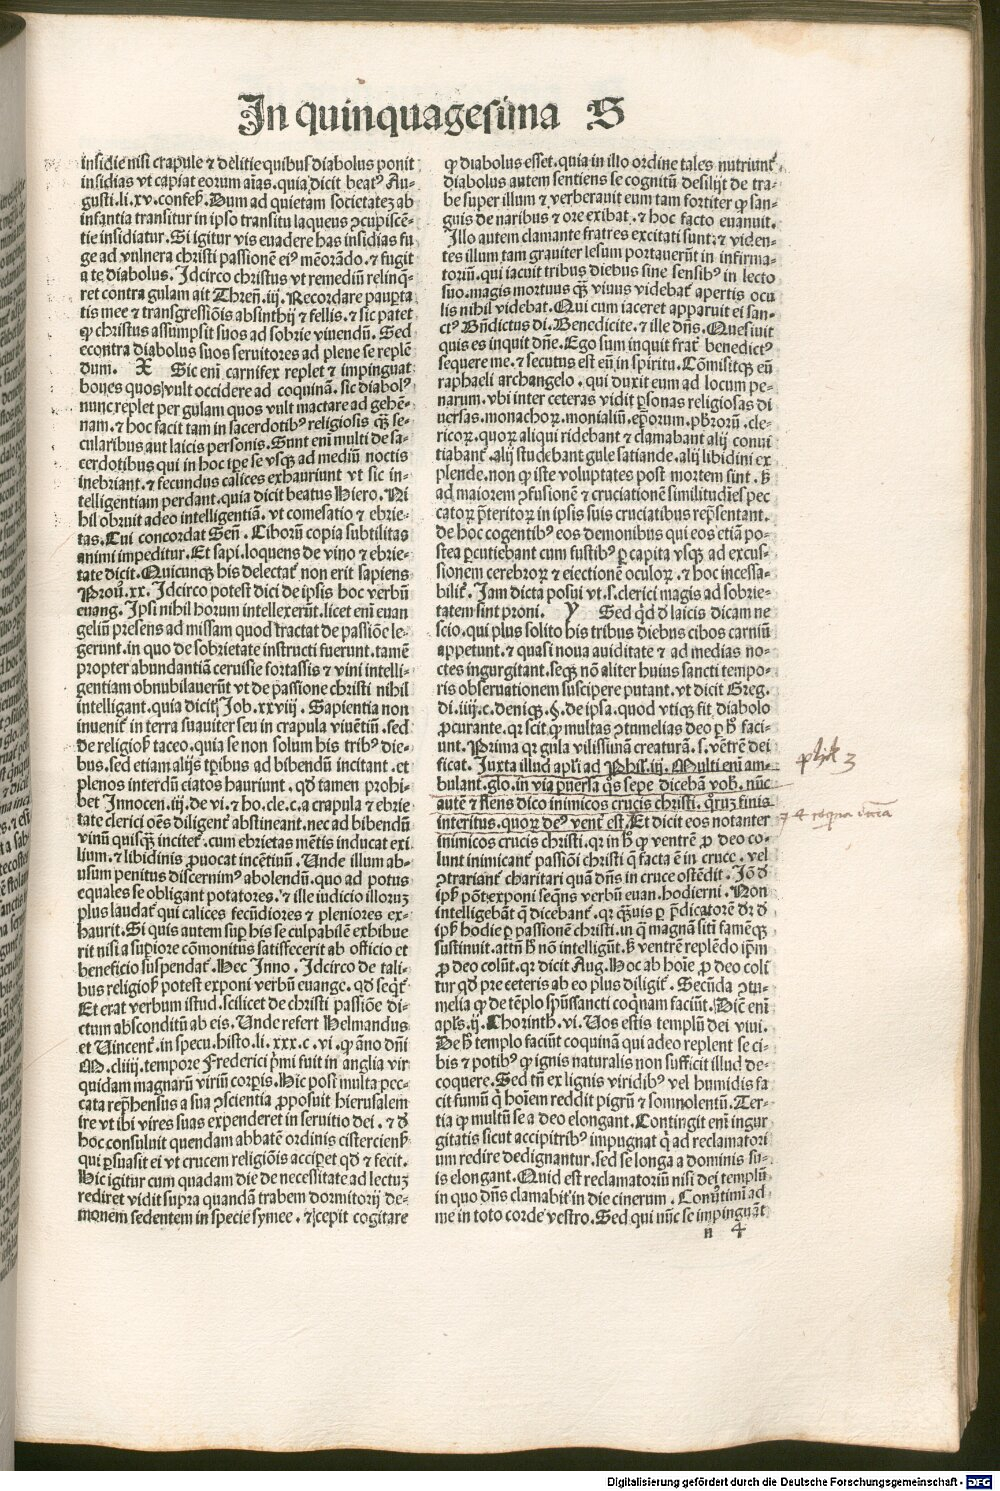 In quinquagesima S
insidie nisi crapule ⁊ delitie quibus diabolus ponit
insidias vt capiat eorum aīas. quia dicit beatꝰ Au-
gusti. li. xv. confes̄. Dum ad quietam societatez ab
infantia transitur in ipso transitu laqueus ꝯcupiscē-
tie insidiatur. Si igitur vis euadere has insidias fu
ge ad vulnera christi passionē eiꝰ memorādo. ⁊ fugit
a te diabolus. Idcirco christus vt remediū relinq̄-
ret contra gulam ait Thren̄. iij. Recordare pauꝑta
tis mee ⁊ transgressiōis absinthij ⁊ fellis. ⁊ sic patet
ꝙ christus assumpsit suos ad sobrie viuendū. Sed
econtra diabolus suos seruitores ad plene se replē
dum. X Sic eni carnifex replet ⁊ impinguat
boues quos vult occidere ad coquinā. sic diabolꝰ
nunc replet per gulam quos vult mactare ad gehē-
nam. ⁊ hoc facit tam in sacerdotibꝰ religiosis qꝫ se-
cularibus aut laicis personis. Sunt eni multi de sa-
cerdotibus qui in hoc ipe se vsqꝫ ad mediū noctis
inebriant. ⁊ fecundus calices exhauriunt vt sic in-
telligentiam perdant. quia dicit beatus Hiero. Ni
hil obruit adeo intelligentiā. vt comesatio ⁊ ebrie-
tas. Cui concordat Sen̄. Ciborū copia subtilitas
animi impeditur. Et sapi. loquens de vino ⁊ ebrie-
tate dicit. Quicunqꝫ his delectat̄ non erit sapiens
Prou. xx. Idcirco potest dici de ipsis hoc verbū
euang. Ipsi nihil horum intellexerūt. licet eni euan
geliū presens ad missam quod tractat de passiōe le-
gerunt. in quo de sobrietate instructi fuerunt. tamē
propter abundantiā ceruisie fortassis ⁊ vini intelli-
gentiam obnubilauerūt vt de passione christi nihil
intelligant. quia dicit̄ Job. xxviij. Sapientia non
inuenit̄ in terra suauiter seu in crapula viuētiū. sed
de religios̄ taceo. quia se non solum his tribꝰ die-
bus. sed etiam alijs tribus ad bibendū incitant. et
plenos interdū ciatos hauriunt. qd tamen prohi-
bet Innocen. iij. de vi. ⁊ ho. cle. c. a crapula ⁊ ebrie
tate clerici oēs diligent̄ abstineant. nec ad bibendū
vinū quisqꝫ incitet̄. cum ebrietas mētis inducat exi
lium. ⁊ libidinis ꝓuocat incētiuū. Unde illum ab-
usum penitus discernimꝰ abolendū. quo ad potus
equales se obligant potatores. ⁊ ille iudicio illoruz
plus laudat̄ qui calices fecūdiores ⁊ pleniores ex-
haurit. Si quis autem suꝑ his se culpabilē exhibue
rit nisi a suꝑiore cōmonitus satisfecerit ab officio et
beneficio suspendat̄. Hec Inno. Idcirco de tali-
bus religios̄ potest exponi verbū euange. qd seqt̄
Et erat verbum istud. scilicet de christi passiōe di-
ctum absconditū ab eis. Unde refert Helmandus
et Uincent̄. in specu. histo. li. xxx. c. vi. ꝙ anno dn̄i
M. cliiij. tempore Frederici p̄mi fuit in anglia vir
quidam magnarū viriū corꝑis. Hic post multa pec-
cata rep̄hensus a sua ꝯscientia ꝓposuit hierusalem
ire vt ibi vires suas expenderet in seruitio dei. ⁊ đ
hoc consuluit quendam abbatē ordinis cisterciens̄
qui ꝑsuasit ei vt crucem religiōis acciꝑet qđ ⁊ fecit.
Hic igitur cum quadam die de necessitate ad lectuz
rediret vidit supra quandā trabem dormitorij de-
monem sedentem in specie symee. ⁊ cepit cogitare
ꝙ diabolus esset. quia in illo ordine tales nutriunt̄.
diabolus autem sentiens se cognitū desilijt de tra-
be super illum ⁊ verberauit eum tam fortiter ꝙ san-
guis de naribus ⁊ ore exibat. ⁊ hoc facto euanuit.
Illo autem clamante fratres excitati sunt. ⁊ viden-
tes illum tam grauiter lesum portauerūt in infirma-
toriū. qui iacuit tribus diebus sine sensibꝰ in lecto
suo. magis mortuus qꝫ viuus videbat̄ apertis ocu
lis nihil videbat. Qui cum iaceret apparuit ei san-
ctꝰ Bn̄dictus di. Benedicite. ⁊ ille dn̄s. Quesiuit
quis es inquit dn̄e. Ego sum inquit frat̄ benedictꝰ
sequere me. ⁊ secutus est eū in spiritu. Cōmisitqꝫ eū
raphaeli archangelo. qui duxit eum ad locum pe-
narum. vbi inter ceteras vidit ꝑsonas religiosas di
uersas. monachoꝝ. monialiū. ep̄orum. pb̄rorū. cle-
ricoꝝ. quoꝝ aliqui ridebant ⁊ clamabant alij conui
tiabant̄. alij studebant gule satiande. alij libidini ex
plende. non ꝙ iste voluptates post mortem sint. s̄
ad maiorem ꝯfusionē ⁊ cruciationē similitudīes pec
catoꝝ p̄teritoꝝ in ipsis suis cruciatibus rep̄sentant.
de hoc cogentibꝰ eos demonibus qui eos etiā po-
stea ꝑcutiebant cum fustibꝰ ꝑ capita vsqꝫ ad excus-
sionem cerebroꝝ ⁊ eiectionē oculoꝝ. ⁊ hoc incessa-
bilit̄. Iam dicta posui vt. s. clerici magis ad sobrie-
tatem sint proni. Y Sed qd đ laicis dicam ne
scio. qui plus solito his tribus diebus cibos carniū
appetunt. ⁊ quasi noua auiditate ⁊ ad medias no-
ctes ingurgitant. seqꝫ nō aliter huius sancti tempo-
ris obseruationem suscipere putant. vt dicit Greg.
di. iiij. c. deniqꝫ. §. de ipsa. quod vtiqꝫ fit diabolo
ꝓcurante. qr scit ꝙ multas ꝯtumelias deo ꝑ h̄ faci-
unt. Prima qr gula vilissimā creaturā. s. ventrē dei
ficat. Iuxta illud apl̄i ad Phil̄. iij. Multi eni am-
bulant. glo. in via ꝑuersa q̄s sepe dicebā vob̄. nūc
autē ⁊ flens dico inimicos crucis christi. qruz finis
interitus. quoꝝ deꝰ vent̄ est. Et dicit eos notanter
inimicos crucis christi. qr in h̄ ꝙ ventrē ꝓ deo co-
lunt inimicant̄ passiōi christi q̄ facta ē in cruce. vel
ꝯtrariant̄ charitati quā dn̄s in cruce ostēdit. Iō đ
ip̄s pōt exponi seqn̄s verbū euan. hodierni. Non
intelligebāt q̄ dicebant̄. qr qꝫuis ꝑ p̄dicatorē dr̄ đ
ip̄s hodie ꝑ passionē christi. in q̄ magnā siti famēqꝫ
sustinuit. attn̄ h̄ nō intelligūt. s̄ ventrē replēdo ip̄m
ꝓ deo colūt. qr dicit Aug. Hoc ab hoīe ꝓ deo coli
tur qđ pre ceteris ab eo plus diligit̄. Secūda ꝯtu-
melia ꝙ de tēplo spūssancti coqnam faciūt. Dic̄ eni
apl̄s. ij. Chorinth. vi. Uos estis templū dei viui.
De h̄ templo faciūt coquinā qui adeo replent se ci-
bis ⁊ potibꝰ ꝙ ignis naturalis non sufficit illud de-
coquere. Sed tn̄ ex lignis viridibꝰ vel humidis fa
cit fumū q̄ hoīem reddit pigrū ⁊ somnolentū. Ter-
tia ꝙ multū se a deo elongant. Contingit eni ingur
gitatis sicut accipitribꝰ impugnat q̄ ad reclamatori
um redire dedignantur. sed se longa a dominis su-
is elongant. Quid est reclamatoriū nisi dei templū
in quo dn̄s clamabit in die cinerum. Conutimī ad
me in toto corde vestro. Sed qui nūc se impinguāt
n 4
phil 3